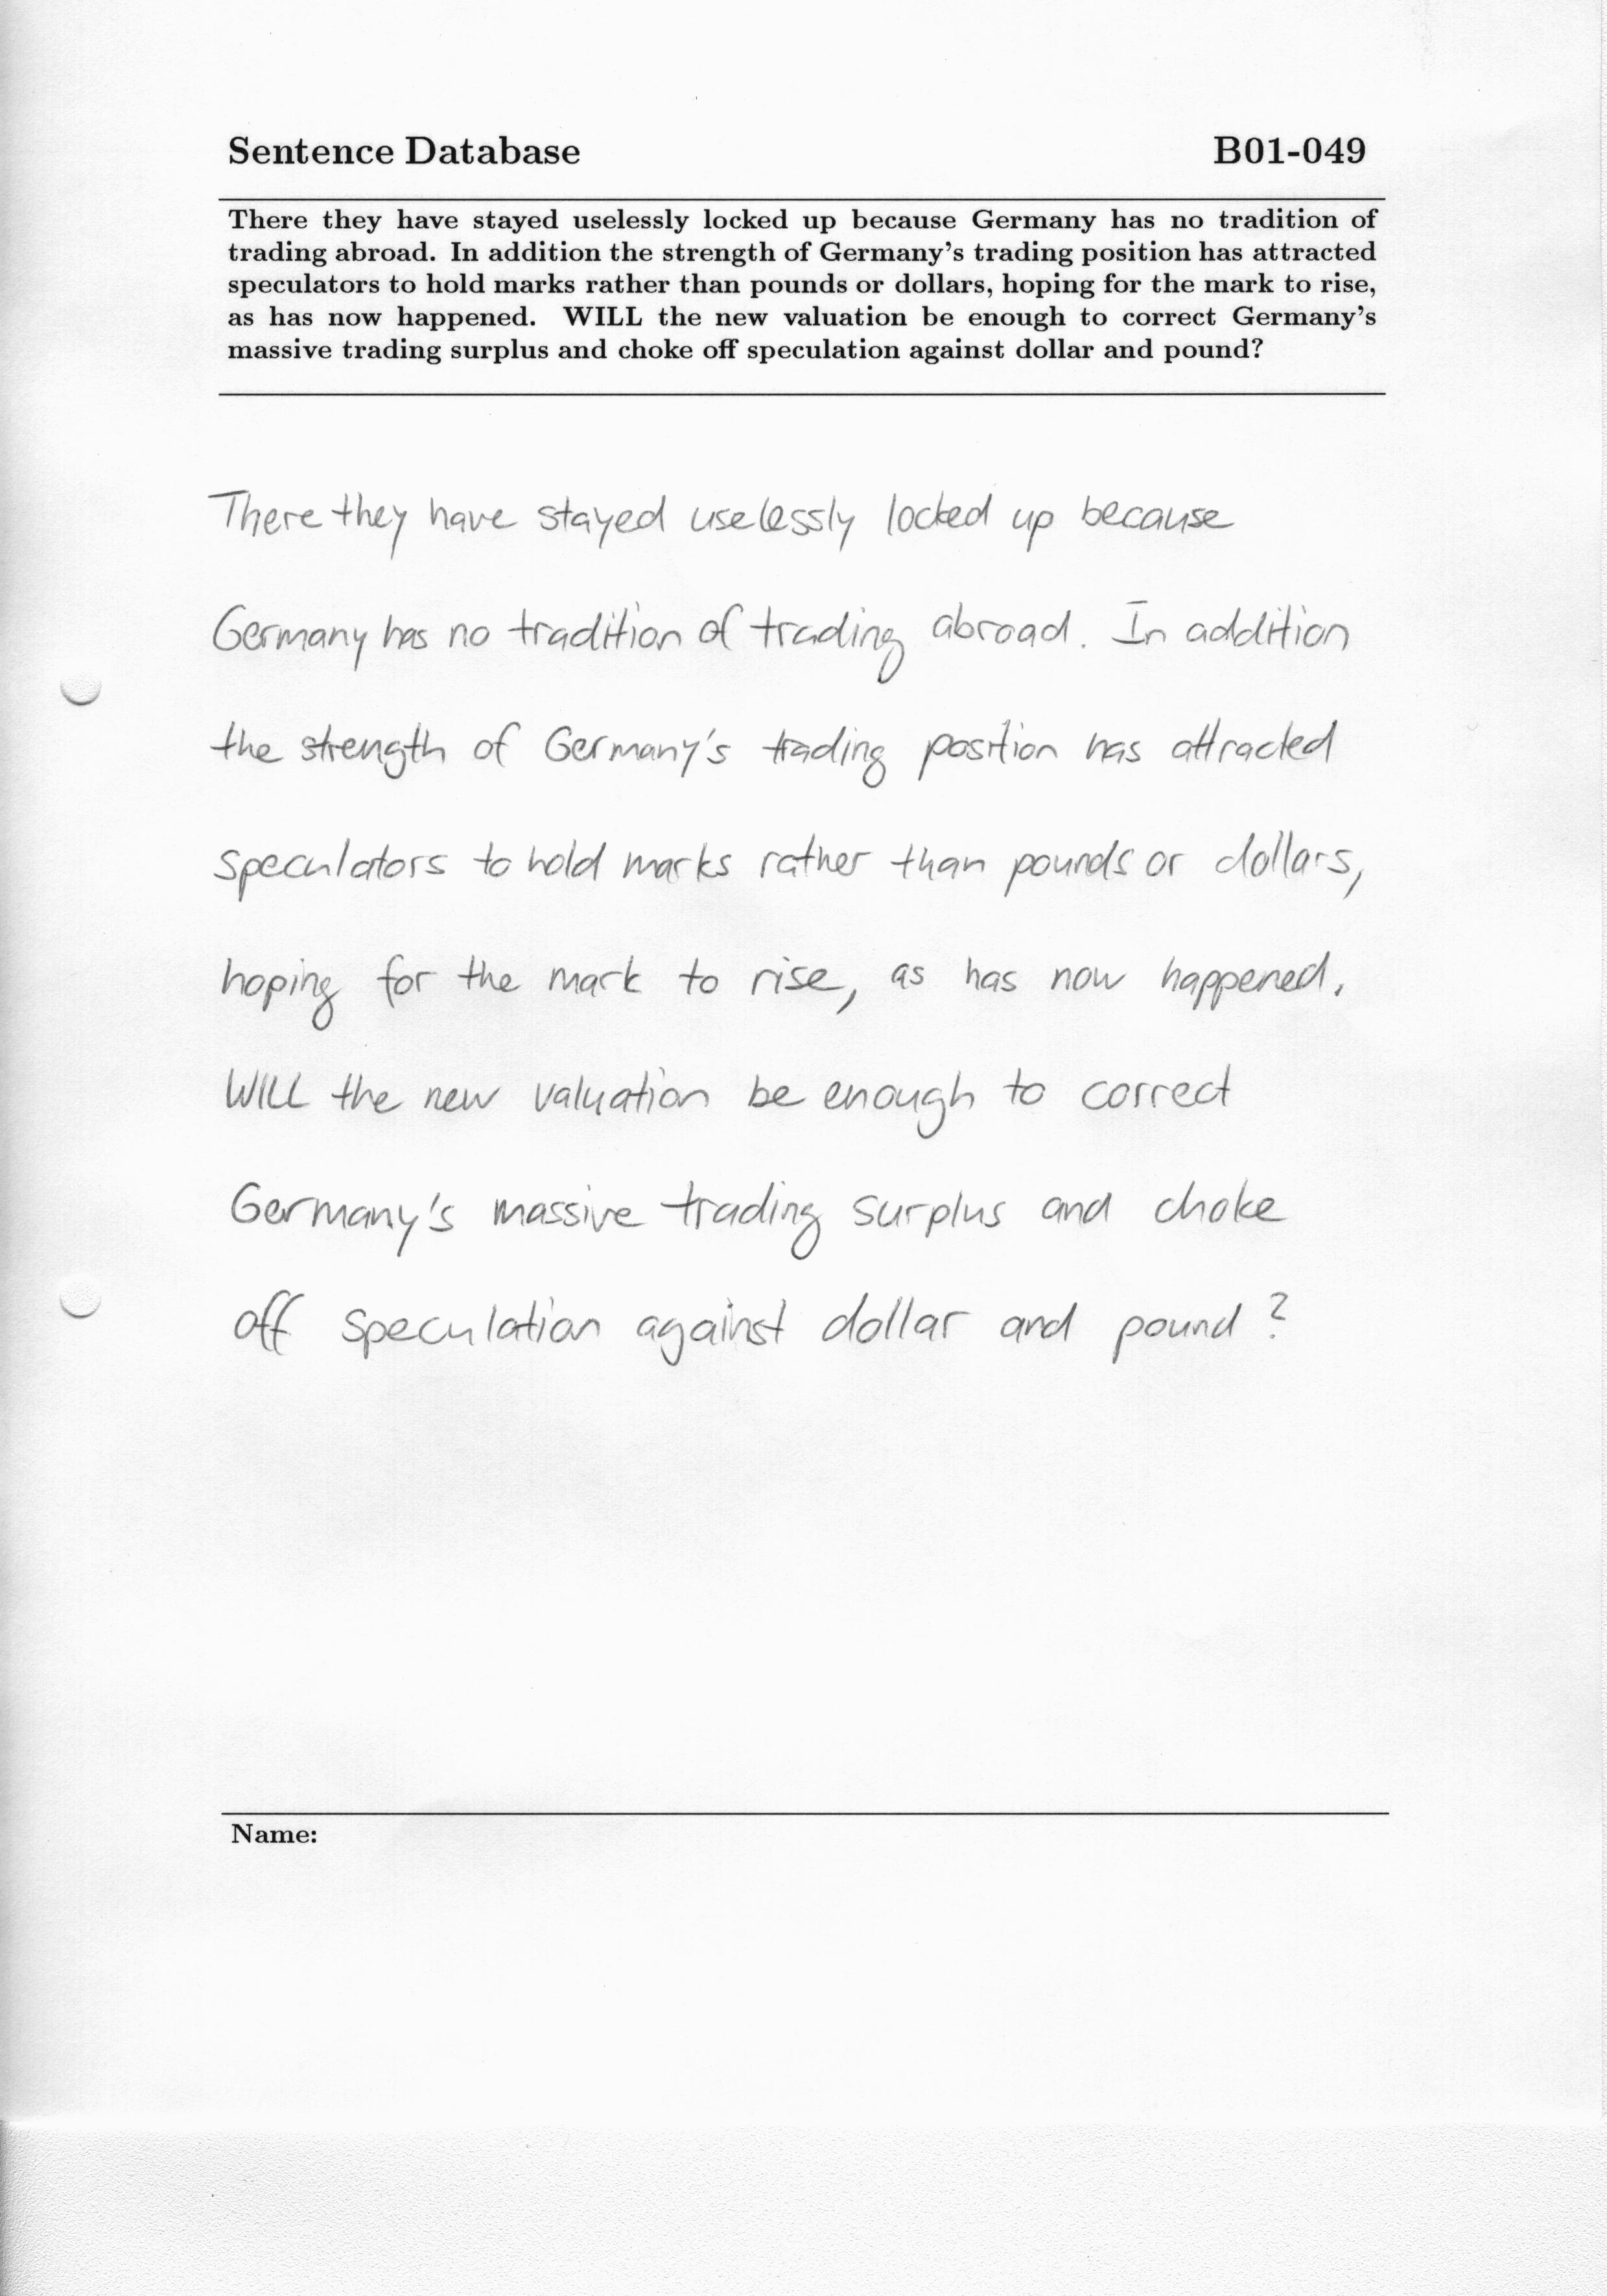 Sentence Database B01-049
There they have stayed uselessly locked up because Germany has no tradition of
trading abroad. In addition the strength of Germany's trading position has attracted
speculators to hold marks rather than pounds or dollars, hoping for the mark to rise,
as has now happened. WILL the new valuation be enough to correct Germany's
massive trading surplus and choke off speculation against dollar and pound?
There they have stayed uselessly locked up because
Germany has no tradition of trading abroad. In addition
the strength of Germany's trading position has attracted
speculators to hold marks rather than pounds or dollars,
hoping for the mark to rise, as has now happened.
WILL the new valuation be enough to correct
Germany's massive trading surplus and choke
off speculation against dollar and pound?
Name: